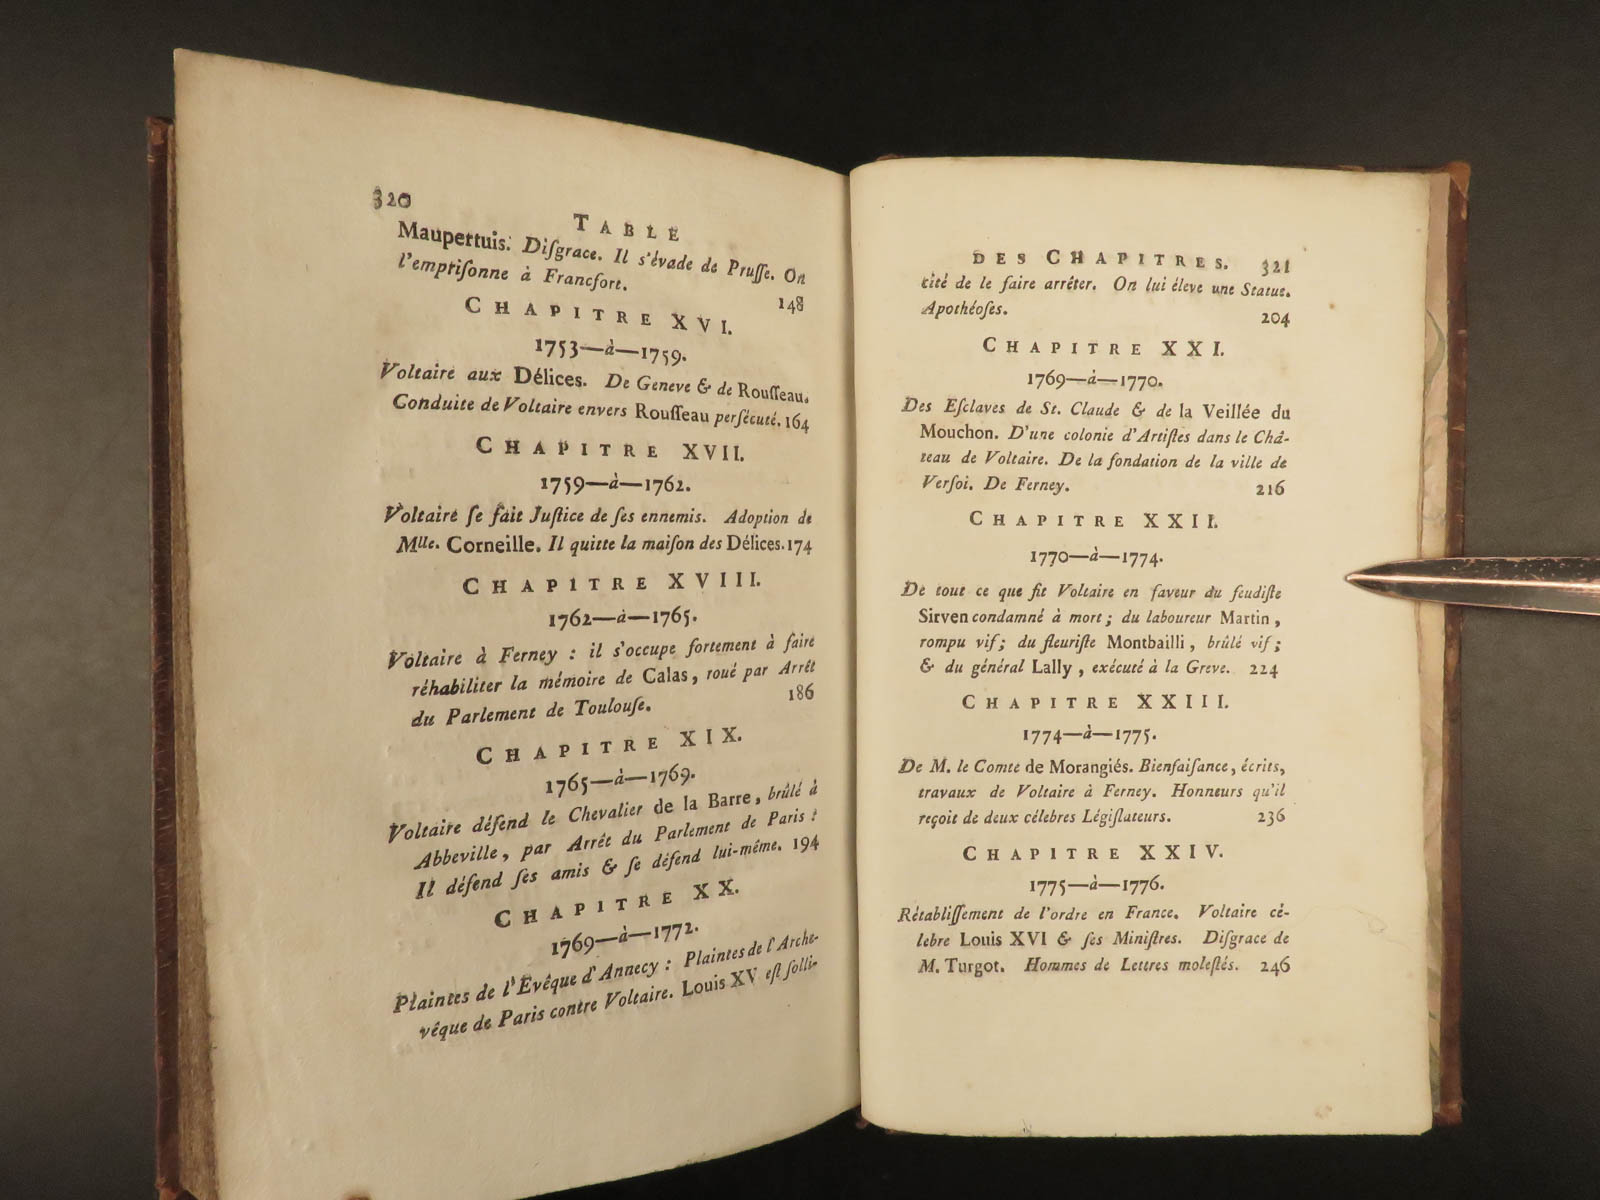 320
TABLE
Maupertuis. Diſgrace. Il s'évade de Pruſſe. On
l'empriſonne à Francfort. 148
CHAPITRE XVI.
1753—à—1759.
Voltaire aux Délices. De Geneve & de Rouſſeau.
Conduite de Voltaire envers Rouſſeau perſécuté. 164
CHAPITRE XVII.
1759—à—1762.
Voltaire ſe fait Juſtice de ſes ennemis. Adoption de
Mlle. Corneille. Il quitte la maiſon des Délices. 174
CHAPITRE XVIII.
1762—à—1765.
Voltaire à Ferney : il s'occupe fortement à faire
réhabiliter la mémoire de Calas, roué par Arrêt
du Parlement de Toulouſe. 186
CHAPITRE XIX.
1765—à—1769.
Voltaire défend le Chevalier de la Barre, brûlé à
Abbeville, par Arrêt du Parlement de Paris :
Il défend ſes amis & ſe défend lui-même. 194
CHAPITRE XX.
1769—à—1772.
Plaintes de l'Evêque d'Annecy : Plaintes de l'Arche-
vêque de Paris contre Voltaire. Louis XV eſt ſolli-
DES CHAPITRES. 321
cité de le faire arrêter. On lui éleve une Statue.
Apothéoſes. 204
CHAPITRE XXI.
1769—à—1770.
Des Eſclaves de St. Claude & de la Veillée du
Mouchon. D'une colonie d'Artiſtes dans le Châ-
teau de Voltaire. De la fondation de la ville de
Verſoi. De Ferney. 216
CHAPITRE XXII.
1770—à—1774.
De tout ce que fit Voltaire en faveur du feudiſte
Sirven condamné à mort ; du laboureur Martin,
rompu vif ; du fleuriſte Montbailli, brûlé vif ;
& du général Lally, exécuté à la Greve. 224
CHAPITRE XXIII.
1774—à—1775.
De M. le Comte de Morangiés. Bienfaiſance, écrits,
travaux de Voltaire à Ferney. Honneurs qu'il
reçoit de deux célebres Légiſlateurs. 236
CHAPITRE XXIV.
1775—à—1776.
Rétabliſſement de l'ordre en France. Voltaire cé-
lebre Louis XVI & ſes Miniſtres. Diſgrace de
M. Turgot. Hommes de Lettres moleſtés. 246